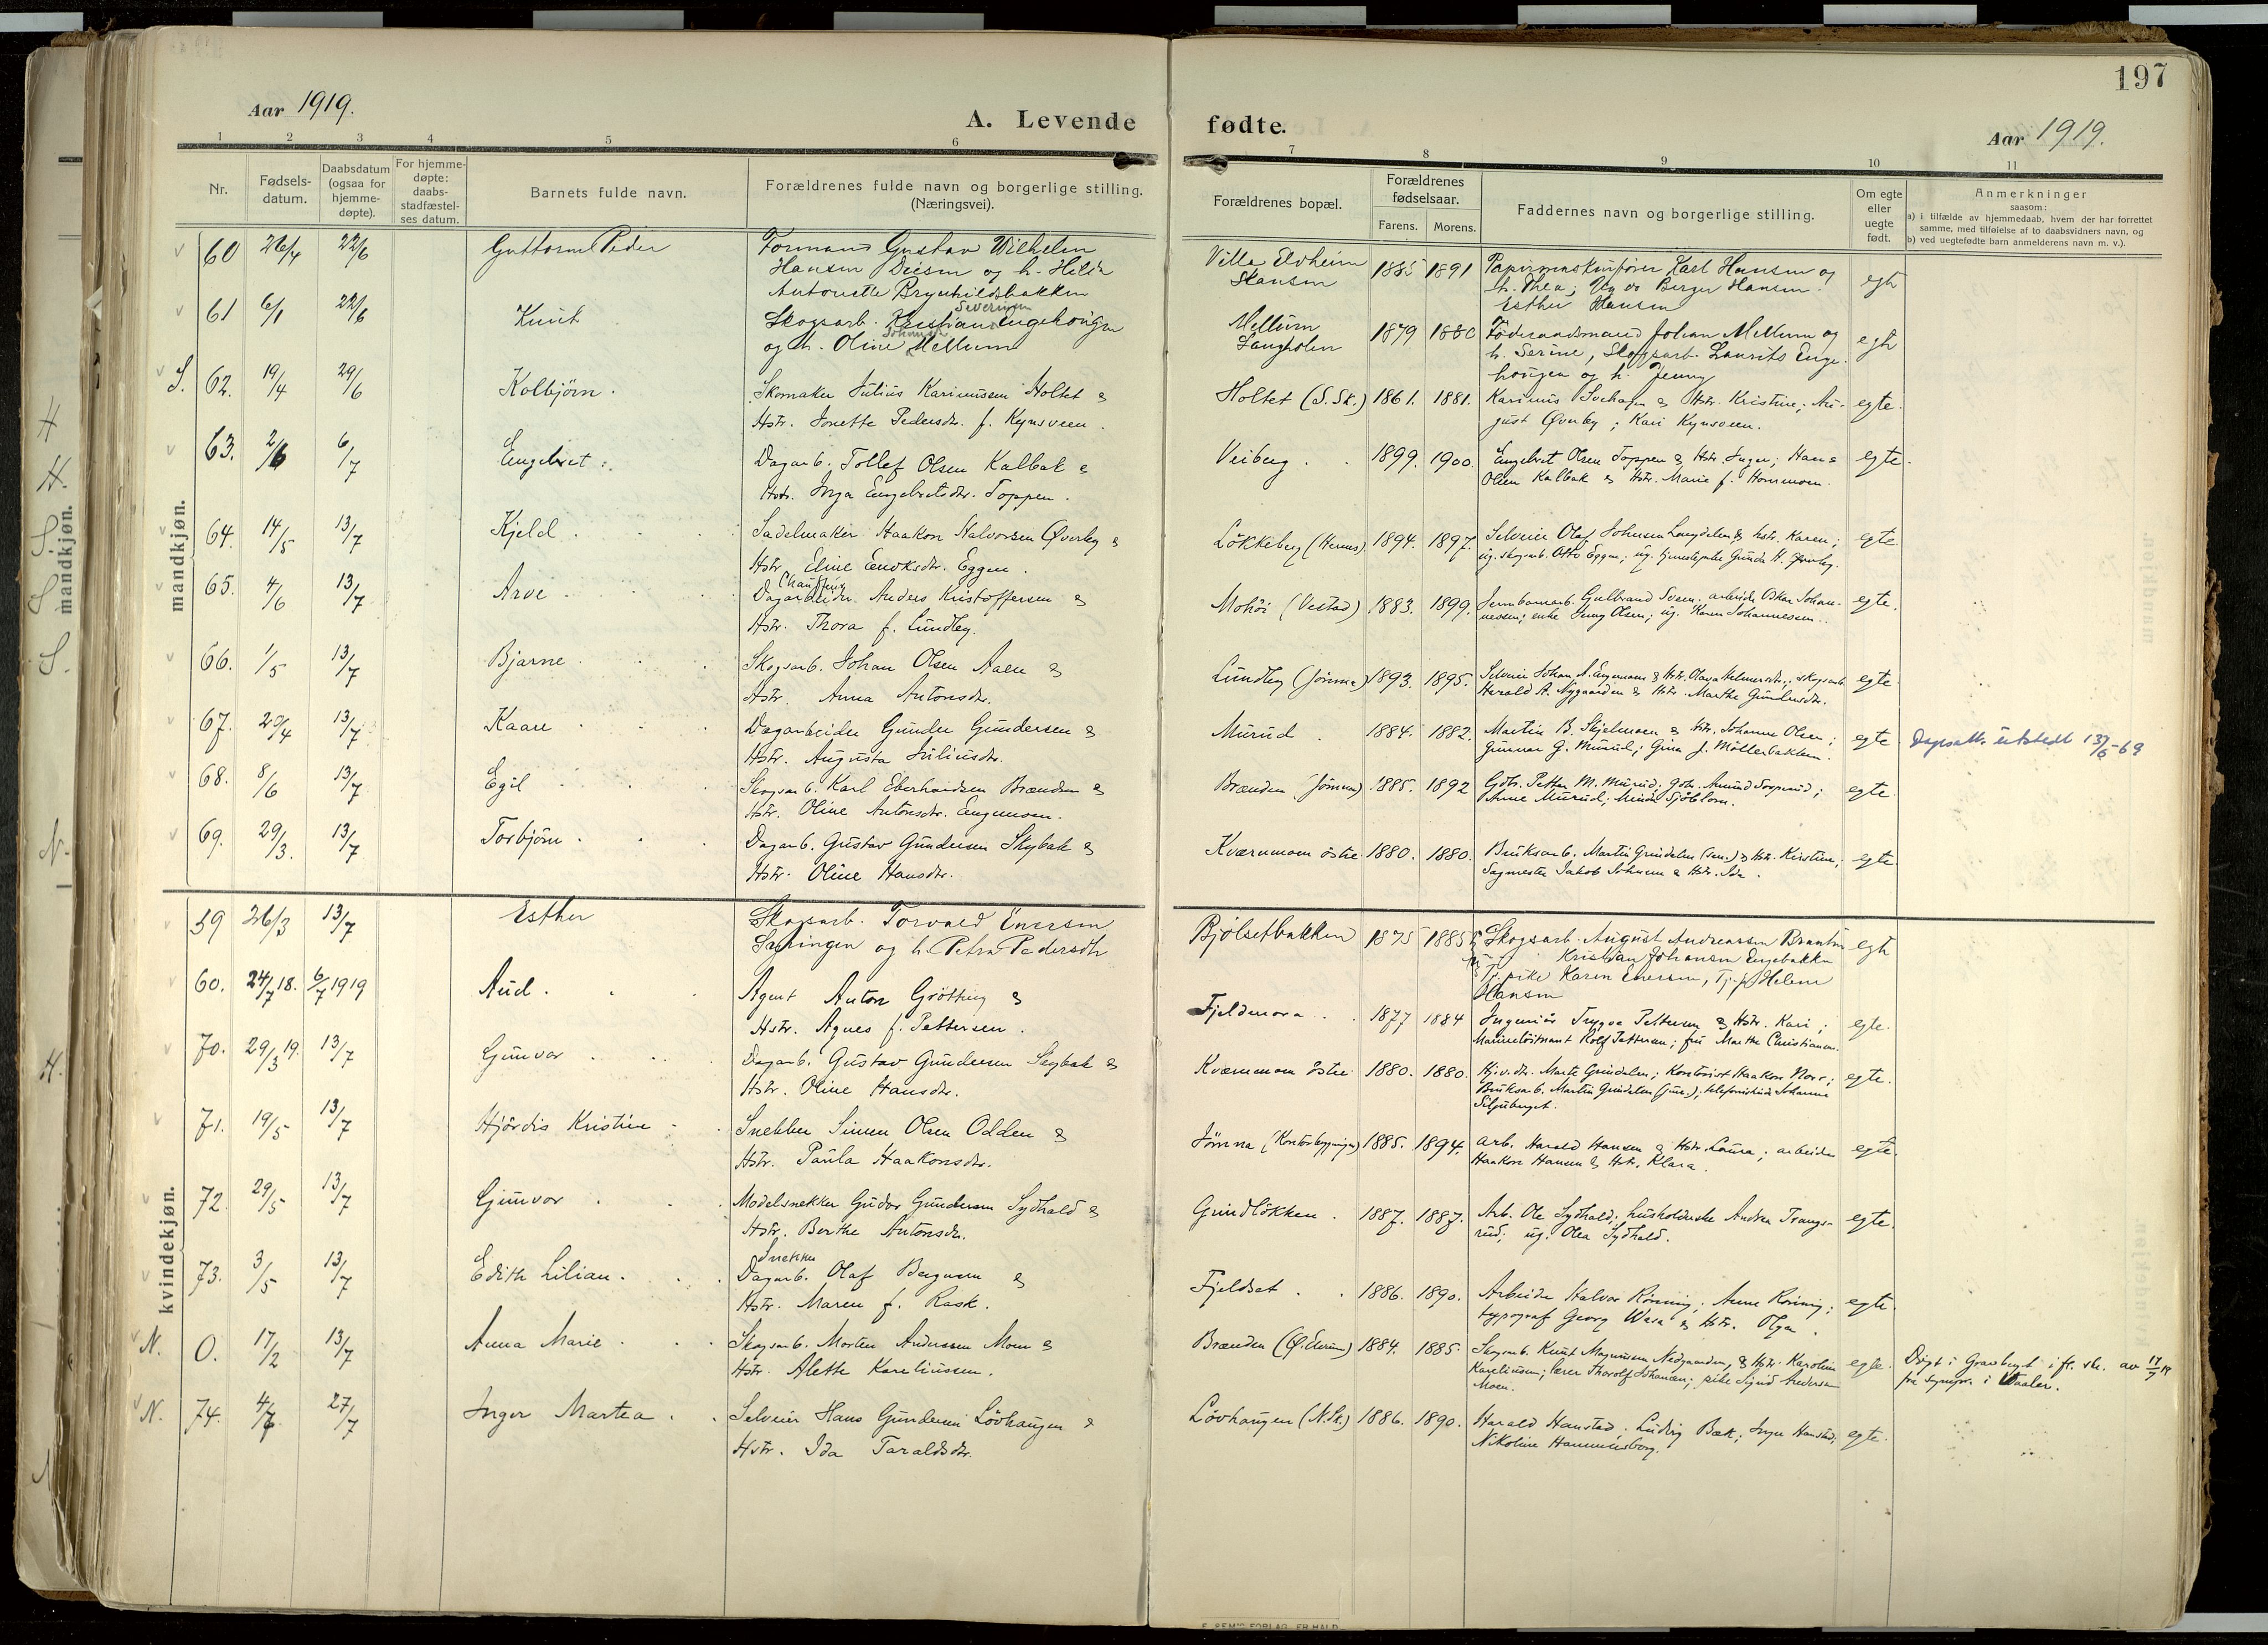 197
Aar 1919.
A. Levende fødte.
Aar 1919.
1 2 3 4 5 6 7 8 9 10 11
Nr.
Fødsels-
datum.
Daabsdatum
(ogsaa for
hjemme-
døpte).
For hjemme-
døpte:
daabs-
stadfæstel-
ses datum.
Barnets fulde navn.
Forældrenes fulde navn og borgerlige stilling.
(Næringsvei).
Forældrenes bopæl.
Forældrenes
fødselsaar.
Farens. Morens.
Faddernes navn og borgerlige stilling.
Om egte
eller
uegte
født.
Anmerkninger
saasom:
a) i tilfælde av hjemmedaab, hvem der har forrettet
samme, med tilføielse af to daabsvidners navn, og
b) ved uegtefødte barn anmelderens navn m. v.).
mandkjøn.
60 26/4 22/6 Guttorm Peder Formand Gustav Wilhelm
Hansen Diesen og h. Hilda
Antonette Brynhildsbakken
Villa Elvheim
Hansen
1885 1891 Papirmaskinfører Karl Hansen og
h. Thea; Birger Hansen
Esther Hansen
egte
61 6/1 22/6 Knut Severinsen
Skogsarb. Kristian Engehougen
Johansd.
og h. Oline Mellum
Mellum
Langholen
1879 1880 Föderaadsmand Johan Mellum og
h. Serine, Skogsarb. Laurits Enge-
hougen og h. Jenny
egte
S. 62. 19/4 29/6 Kolbjörn. Skomaker Julius Karinussen Holtet &
Hstr. Jonette Pedersdtr. f. Kynsveen.
Holtet (S. Sk.) 1861. 1881. Karinus & Hstr. Kristine; Au-
gust Øverby; Kari Kynsveen.
egte.
63. 2/6 6/7 Engebret. Dagarb. Tollef Olsen Kalbak &
Hstr. Inga Engebretsdtr. Toppen.
Veiberg. 1899. 1900. Engebret Olsen Toppen & Hstr. Inger; Hans
Olsen Kalbak & Hstr. Marie f. Hommoen.
egte.
64. 14/5 13/7 Kjeld. Sadelmaker Haakon Halvorsen Øverby &
Hstr. Eline Enoksdtr. Eggen.
Lökkeberg (Hernes) 1894. 1897. Selveier Olaf Johnsen Langdalen & hstr. Karen;
ug. skogsarb. Otto Eggen; ug. Gunda H. Øverby.
egte.
65. 4/6 13/7 Arve. Chauffeur
Dagarbeider Anders Kristoffersen &
Hstr. Thora f. Lundby.
Mohöi (Vestad) 1883. 1899. Jernbanearb. Gulbrand Svesen. arbeider Oskar Johan-
nessen; enke Jenny Olsen; ug. Karen Johannessen.
egte.
66. 1/5 13/7 Bjarne. Skogsarb. Johan Olsen Aasen &
Hstr. Anna Antonsdtr.
Lundby (Jömna) 1893. 1895. Selveier Johan A. Engemoen & Hstr. Olava Helmersdtr.; skogsarb.
Harald A. Nygaarden & Hstr. Marthe Gundersdtr.
egte.
67. 20/4 13/7 Kaare. Dagarbeider Gunder Gundersen &
Hstr. Augusta Juliusdtr.
Murud. 1884. 1882. Martin B. Skjelmoen & Hstr. Johanne Olsen;
Gunnar G. Murud; Gina J. Möllerbakken.
egte. Dåpsatt. utstedt 13/6-69
68. 8/6 13/7 Egil. Skogsarb. Karl Eberhardsen Brænden &
Hstr. Oline Antonsdtr. Engemoen.
Brænden (Jömna) 1885. 1892 Gdbr. Petter M. Murud; Gdbr. Amund Sorperud;
Anne Murud; Minda Sjöblom.
egte.
69. 29/3. 13/7 Torbjörn. Dagarb. Gustav Gundersen Skybak &
Hstr. Oline Hansdtr.
Kværnmoen östre 1880. 1880. Bruksarb. Martin Grindalen (sen.) & Hstr. Kirstine;
Sagmester Jakob Johnsen & Hstr. Ida.
egte.
kvindekjøn.
59 26/3 13/7 Esther Skogsarb. Torvald Enersen
Sætringen og h. Petra Pedersdtr
Bjölsetbakken 1875 1885 Skogsarb. August Andreassen Brænden
Kristian Johansen Engebakken
Tj. pike Karen Enersen, Tj. p. Helene
Hansen
egte
60. 24/7 18. 6/7 1919 Aud. Agent Anton Grötting &
Hstr. Agnes f. Pettersen.
Fjeldmora. 1877 1884 Ingeniör Trygve Pettersen & Hstr. Kari;
Marinelöitnant Rolf Pettersen; fru Marthe Christiansen.
egte.
70. 29/3 19. 13/7 Gunvor. Dagarb. Gustav Gundersen Skybak &
Hstr. Oline Hansdtr.
Kværnmoen östre. 1880. 1880. Marte Grindalen; Kontorist Haakon Nor;
Bruksarb. Martin Grindalen (jun.); telefonistinde Johanne
Siljuberget.
egte.
71. 19/5 13/7 Hjördis Kristine Snekker Simen Olsen Odden &
Hstr. Paula Haakonsdtr.
Jömna (Kontorbygningen) 1885. 1894. Arb. Harald Hansen & Hstr. Laura; arbeider
Haakon Hansen & Hstr. Klara.
egte.
72. 29/5 13/7 Gunvor. Modelsnekker Gudor Gundersen Sydhald &
Hstr. Berthe Antonsdtr.
Grindlökken. 1887. 1887. Arb. Ole Sydhald; husholderske Andrea Trangs-
rud; ug. Olea Sydhald.
egte.
73. 3/5 13/7 Edith Lilian. Snekker
Dagarb. Olaf Bergersen &
Hstr. Maren f. Rask.
Fjeldset. 1886. 1890. Arbeider Halvor Rönning; Anne Rönning;
typograf Georg Wasa & Hstr. Olga.
egte.
N. 0. 17/2 13/7 Anna Marie. Skogsarb. Morten Anderssen Moen &
Hstr. Alette Kareliussen.
Brænden (Ø. Elverum) 1884. 1885. Skogsarb. Knut Magnussen Nedgaarden, & Hstr. Karoline
Kareliussen; lærer Thorolf Johansen; pike Sigrid Andersen
Moen.
egte. Döpt i Gravberget i fl. skr. av 17/7 19
fra sognepr. i Vaaler.
N. 74. 4/6 27/7 Inger Martea. Selveier Hans Gundersen Lövhaugen &
Hstr. Ida Taraldsdtr.
Lövhaugen (N. Sk.) 1886. 1890. Harald Hanstad; Ludvig Bæk; Inger Hanstad;
Nikoline Hammersborg.
egte.